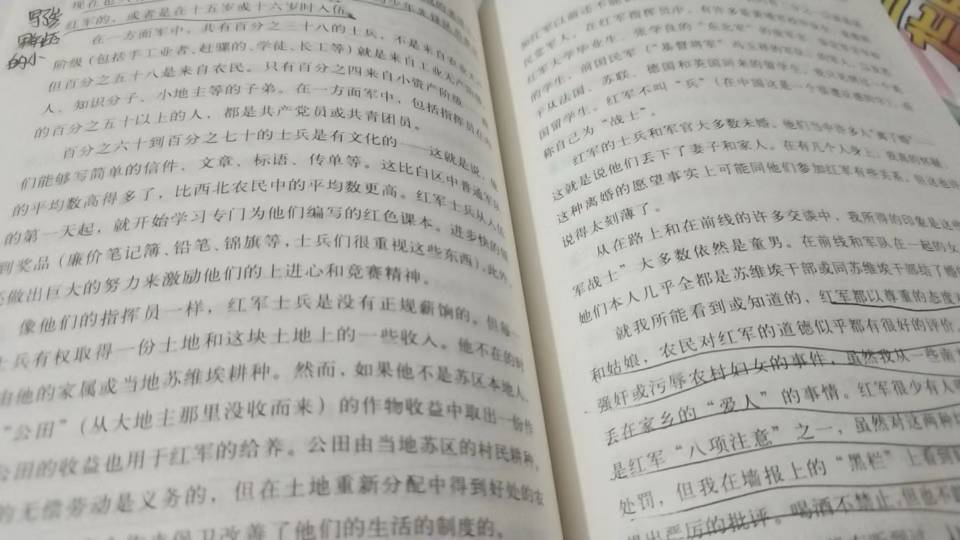 红军的，或者是在十五岁或十六岁时入伍
在一方面军中，共有百分之三十八的士兵，不是来自
阶级（包括手工业者、赶骡的、学徒、长工等）就是来自工业
但百分之五十八是来自农民。只有百分之四来自小资产阶级
人、知识分子、小地主等的子弟。在一方面军中，包括指挥员
的百分之五十以上的人，都是共产党员或共青团员。
百分之六十到百分之七十的士兵是有文化的——这就是说，
们能够写简单的信件、文章、标语、传单等。这比白区中普通军队
的平均数高得多了，比西北农民中的平均数更高。红军士兵从入伍
的第一天起，就开始学习专门为他们编写的红色课本。进步快的
到奖品（廉价笔记簿、铅笔、锦旗等，士兵们很重视这些东西）。此外，
做出巨大的努力来激励他们的上进心和竞赛精神。
像他们的指挥员一样，红军士兵是没有正规薪饷的。但每
士兵有权取得一份土地和这块土地上的一些收入。他不在的时
由他的家属或当地苏维埃耕种。然而，如果他不是苏区本地人，
“公田”（从大地主那里没收而来）的作物收益中取出一份作
公田的收益也用于红军的给养。公田由当地苏区的村民耕种，
的无偿劳动是义务的，但在土地重新分配中得到好处的农
保卫改善了他们的生活的制度的。
民党军人。在红军指挥员中，有许多
红军大学毕业生、张学良的“东北军”
的学生、前国民军（“基督将军”冯玉祥的
平从法国、苏联、德国和英国回来的留学生，
国留学生。红军不叫“兵”（在中国这是一个
称自己为“战士”。
红军的士兵和军官大多数未婚。他们当中许多人“离了婚”——
这就是说他们丢下了妻子和家人。在有几个人身上，我真的怀疑，
这种离婚的愿望事实上可能同他们参加红军有些关系，但这也许
说得太刻薄了。
从在路上和在前线的许多交谈中，我所得的印象是这些
军战士”大多数依然是童男。在前线和军队在一起的女
她们本人几乎全都是苏维埃干部或同苏维埃干部结了婚的
就我所能看到或知道的，红军都以尊重的态度对
和姑娘，农民对红军的道德似乎都有很好的评价。
强奸或污辱农村妇女的事件，虽然我从一些南
丢在家乡的“爱人”的事情。红军很少有人
是红军“八项注意”之一，虽然对这两种
处罚，但我在墙报上的“黑栏”上看到
提出严厉的批评。喝酒不禁止，但他不